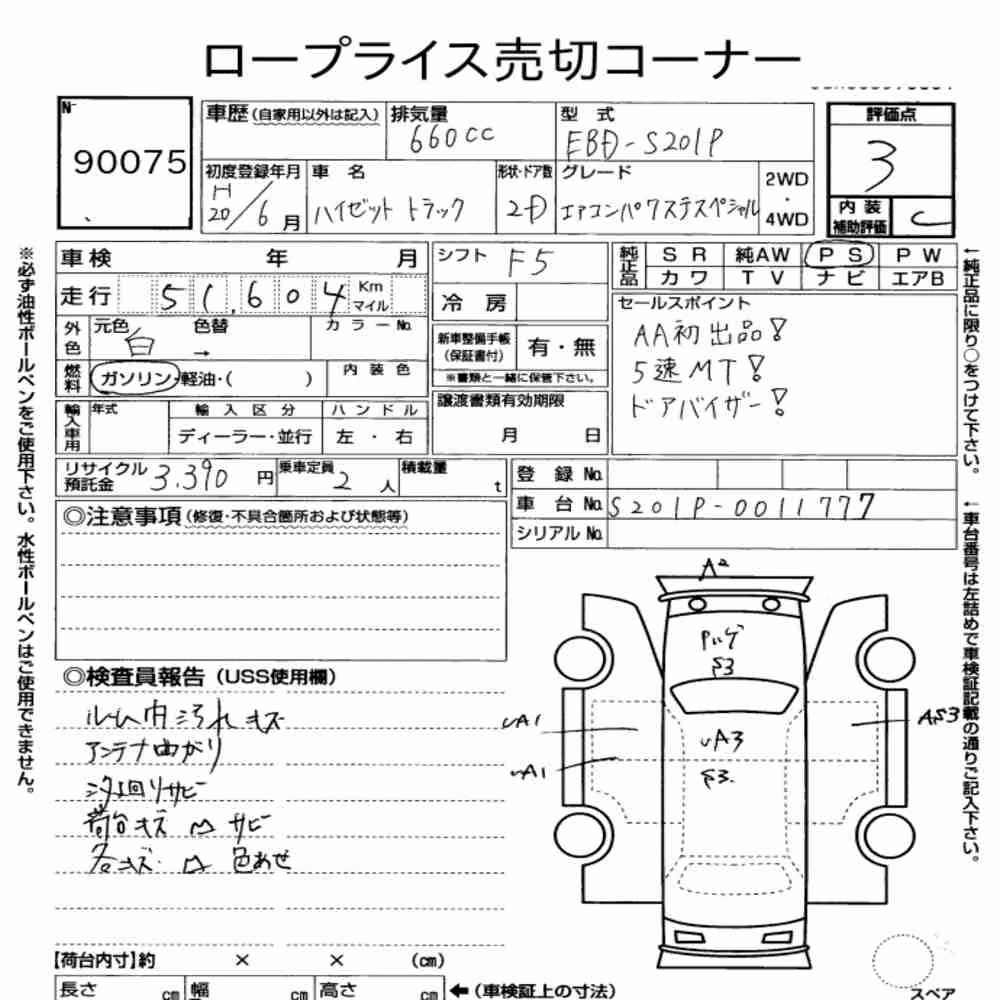 ロープライス売切コーナー
N-
90075
車歴(自家用以外は記入)
排気量
660cc
型式
EBD-S201P
評価点
3
初度登録年月
H
20/6月
車名
ハイゼット トラック
形状・ドア数
2D
グレード
エアコンパワステスペシャル
2WD
・
4WD
内装
補助評価
C
車検 年 月
走行 51,604 Km
マイル
外色
元色
白
色替
→
カラーNo.
燃料
ガソリン・軽油・( )
内装色
輸入車用
年式
輸入区分
ディーラー・並行
ハンドル
左・右
シフト
F5
冷房
新車整備手帳
(保証書付)
有・無
※書類と一緒に保管下さい。
譲渡書類有効期限
月 日
純正品
SR 純AW PS PW
カワ TV ナビ エアB
セールスポイント
AA初出品!
5速MT!
ドアバイザー!
リサイクル
預託金
3.390円
乗車定員
2人
積載量
t
登録No.
車台No.
S201P-0011777
シリアルNo.
◎注意事項(修復・不具合箇所および状態等)
◎検査員報告(USS使用欄)
ルーム内汚れキズ
アンテナ曲がり
下廻りサビ
荷台キズ凹サビ
各キズ凹色あせ
A2
ハゲ
S3
UA3
S3.
UA1
UA1
AS3
【荷台内寸】約 × × (cm)
長さ cm
幅 cm
高さ cm
←(車検証上の寸法)
スペア
※必ず油性ボールペンをご使用下さい。水性ボールペンはご使用できません。
←純正品に限り○をつけて下さい。
←車台番号は左詰めで車検証記載の通りご記入下さい。